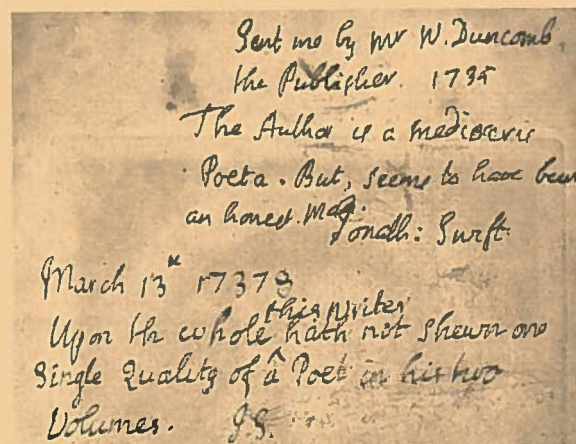 Sent me by Mr W. Duncomb,
the Publisher. 1735
The Author is a mediocris
Poeta. But, seems to have been
an honest. Man.
Jonath: Swift.
March 13th 17378
this writer
Upon the whole hath not shewn one
Single Quality of a Poet in his two
Volumes. J.S.